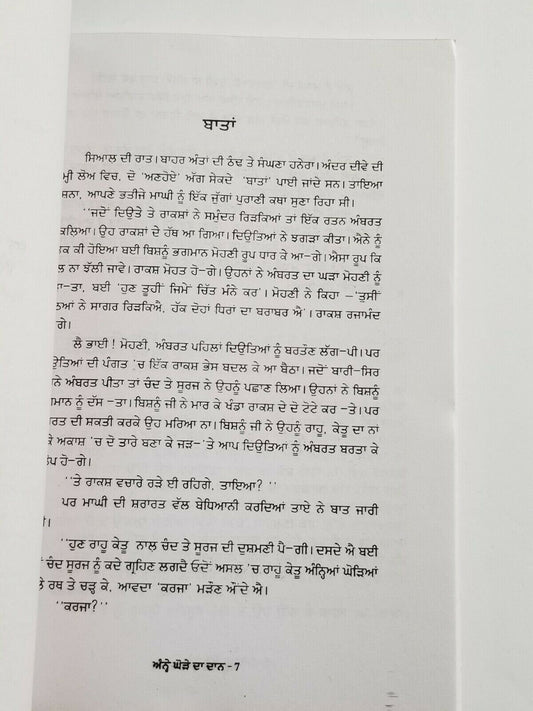 ਬਾਤਾਂ
ਸਿਆਲ ਦੀ ਰਾਤ। ਬਾਹਰ ਅੰਤਾਂ ਦੀ ਠੰਢ ਤੇ ਸੰਘਣਾ ਹਨੇਰਾ। ਅੰਦਰ ਦੀਵੇ ਦੀ
ਲੋਅ ਵਿਚ, ਦੋ 'ਅਣਹੋਏ' ਅੱਗ ਸੇਕਦੇ 'ਬਾਤਾਂ' ਪਾਈ ਜਾਂਦੇ ਸਨ। ਤਾਇਆ
ਸ਼ਨਾ, ਆਪਣੇ ਭਤੀਜੇ ਮਾਘੀ ਨੂੰ ਇੱਕ ਜੁੱਗਾਂ ਪੁਰਾਣੀ ਕਥਾ ਸੁਣਾ ਰਿਹਾ ਸੀ।
''ਜਦੋਂ ਦਿਉਤੇ ਤੇ ਰਾਕਸ਼ਾਂ ਨੇ ਸਮੁੰਦਰ ਰਿੜਕਿਆਂ ਤਾਂ ਇੱਕ ਰਤਨ ਅੰਬਰਤ
ਕਲਿਆ। ਉਹ ਰਾਕਸ਼ਾਂ ਦੇ ਹੱਥ ਆ ਗਿਆ। ਦਿਉਤਿਆਂ ਨੇ ਝਗੜਾ ਕੀਤਾ। ਐਨੇ ਨੂੰ
ਕ ਕੀ ਹੋਇਆ ਬਈ ਬਿਸ਼ਨੂੰ ਭਗਮਾਨ ਮੋਹਣੀ ਰੂਪ ਧਾਰ ਕੇ ਆ-ਗੇ। ਐਸਾ ਰੂਪ ਕਿ
ਲ ਨਾ ਝੱਲੀ ਜਾਵੇ। ਰਾਕਸ਼ ਮੋਹਤ ਹੋ-ਗੇ। ਉਹਨਾਂ ਨੇ ਅੰਬਰਤ ਦਾ ਘੜਾ ਮੋਹਣੀ ਨੂੰ
ਾ-ਤਾ, ਬਈ 'ਹੁਣ ਤੂਹੀਂ ਜਿਮੇਂ ਚਿੱਤ ਮੰਨੇ ਕਰ'। ਮੋਹਣੀ ਨੇ ਕਿਹਾ -'ਤੁਸੀਂ
ਨਆਂ ਨੇ ਸਾਗਰ ਰਿੜਕਿਐ, ਹੱਕ ਦੋਹਾਂ ਧਿਰਾਂ ਦਾ ਬਰਾਬਰ ਐ'। ਰਾਕਸ਼ ਰਜਾਮੰਦ
ਗੇ।
ਲੈ ਭਾਈ! ਮੋਹਣੀ, ਅੰਬਰਤ ਪਹਿਲਾਂ ਦਿਉਤਿਆਂ ਨੂੰ ਬਰਤੌਣ ਲੱਗ-ਪੀ। ਪਰ
ਉਤਿਆਂ ਦੀ ਪੰਗਤ 'ਚ ਇੱਕ ਰਾਕਸ਼ ਭੇਸ ਬਦਲ ਕੇ ਆ ਬੈਠਾ। ਜਦੋਂ ਬਾਰੀ-ਸਿਰ
ਨੇ ਅੰਬਰਤ ਪੀਤਾ ਤਾਂ ਚੰਦ ਤੇ ਸੂਰਜ ਨੇ ਉਹਨੂੰ ਪਛਾਣ ਲਿਆ। ਉਹਨਾਂ ਨੇ ਬਿਸ਼ਨੂੰ
ਮਾਨ ਨੂੰ ਦੱਸ -ਤਾ। ਬਿਸ਼ਨੂੰ ਜੀ ਨੇ ਮਾਰ ਕੇ ਖੰਡਾ ਰਾਕਸ਼ ਦੇ ਦੋ ਟੋਟੇ ਕਰ -ਤੇ। ਪਰ
ਰਤ ਦੀ ਸ਼ਕਤੀ ਕਰਕੇ ਉਹ ਮਰਿਆ ਨਾ। ਬਿਸ਼ਨੂੰ ਜੀ ਨੇ ਉਹਨੂੰ ਰਾਹੂ, ਕੇਤੂ ਦਾ ਨਾਂ
ਕੇ ਅਕਾਸ਼ 'ਚ ਦੋ ਤਾਰੇ ਬਣਾ ਕੇ ਜੜ-'ਤੇ ਆਪ ਦਿਉਤਿਆਂ ਨੂੰ ਅੰਬਰਤ ਬਰਤਾ ਕੇ
ਪ ਹੋ-ਗੇ।
''ਤੇ ਰਾਕਸ਼ ਵਚਾਰੇ ਹੜੇ ਈ ਰਹਿਗੇ, ਤਾਇਆ?''
ਪਰ ਮਾਘੀ ਦੀ ਸ਼ਰਾਰਤ ਵੱਲ ਬੇਧਿਆਨੀ ਕਰਦਿਆਂ ਤਾਏ ਨੇ ਬਾਤ ਜਾਰੀ
ੀ।
''ਹੁਣ ਰਾਹੂ ਕੇਤੂ ਨਾਲ ਚੰਦ ਤੇ ਸੂਰਜ ਦੀ ਦੁਸ਼ਮਣੀ ਪੈ-ਗੀ। ਦਸਦੇ ਐ ਬਈ
ਚੰਦ ਸੂਰਜ ਨੂੰ ਕਦੇ ਗ੍ਰਹਿਣ ਲਗਦੈ ਓਦੋਂ ਅਸਲ 'ਚ ਰਾਹੂ ਕੇਤੂ ਅੰਨ੍ਹਿਆਂ ਘੋੜਿਆਂ
ਲੇ ਰਥ ਤੇ ਚੜ੍ਹ ਕੇ, ਆਵਦਾ 'ਕਰਜਾ' ਮੜੌਣ ਔਂਦੇ ਐ।
''ਕਰਜਾ?''
ਅੰਨ੍ਹੇ ਘੋੜੇ ਦਾ ਦਾਨ - 7